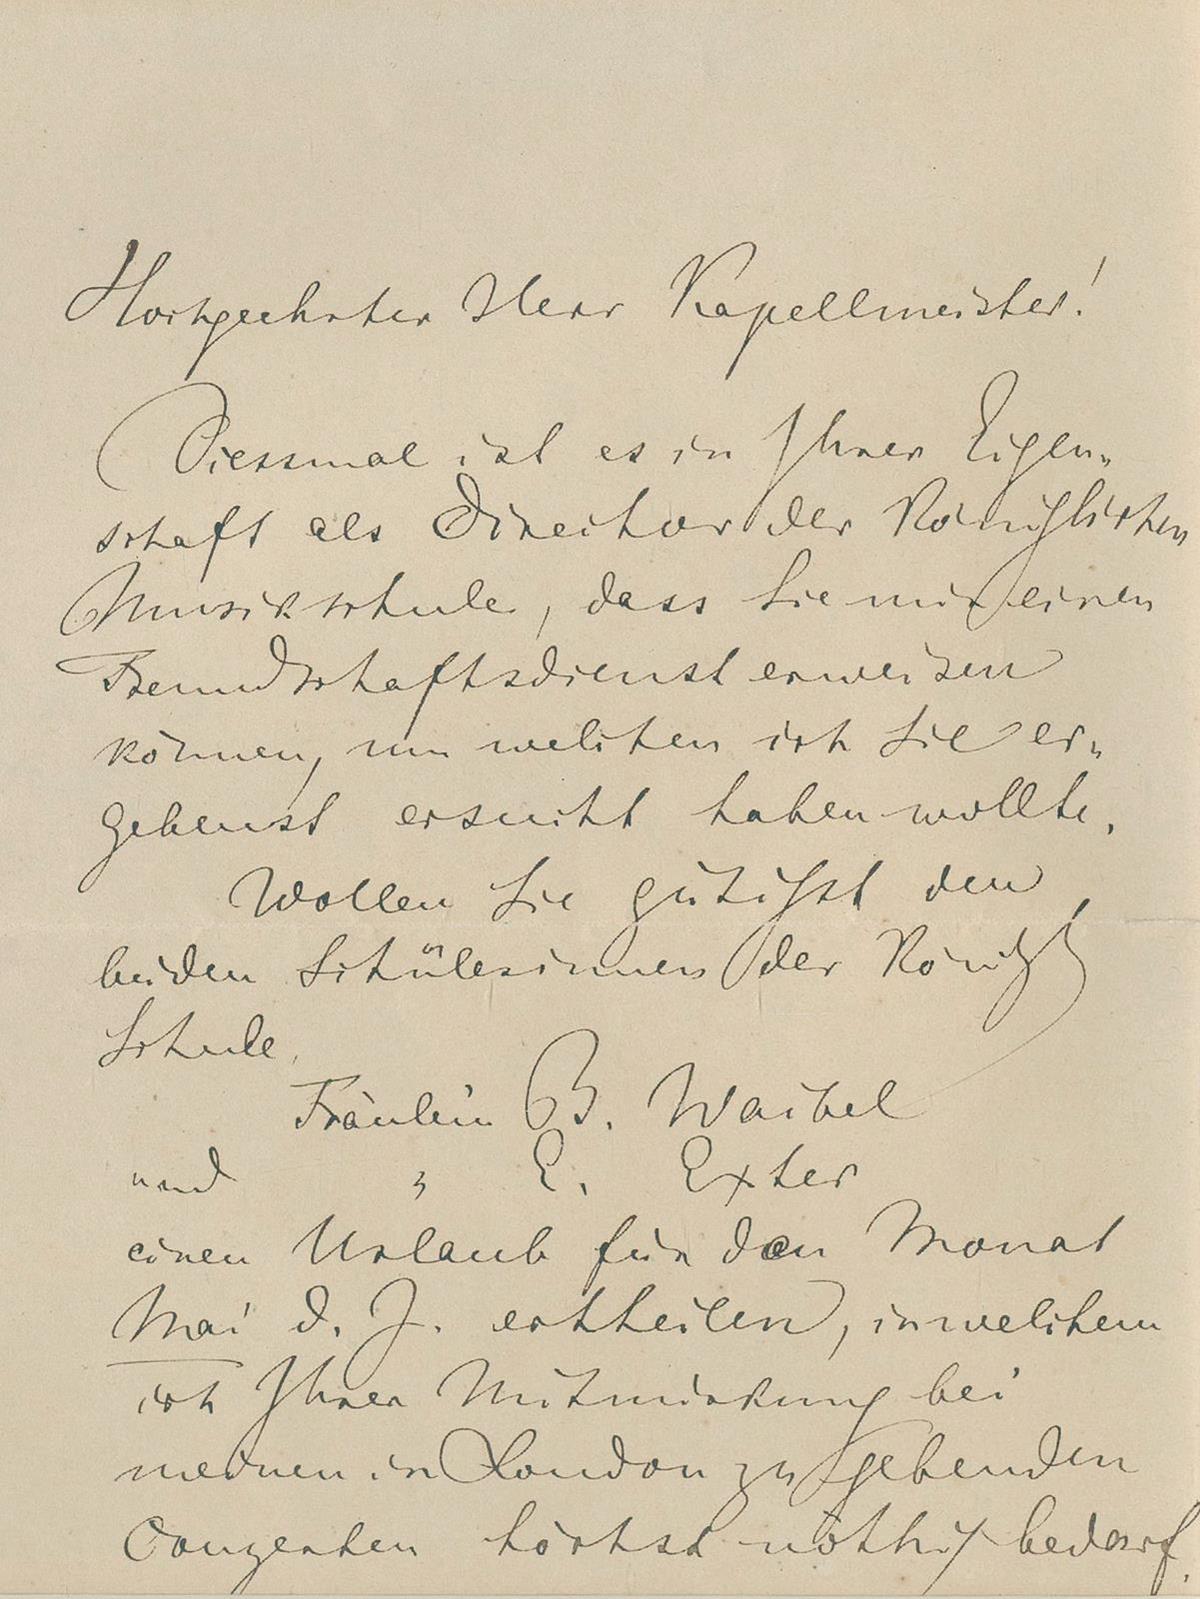 Hochgeehrter Herr Kapellmeister!
Diessmal ist es in Ihrer Eigen-
schaft als Director der Königlichen
Musikschule, dass Sie mir einen
Freundschaftsdienst erweisen
können, um welchen ich Sie er-
gebenst ersucht haben wollte.
Wollen Sie gütigst den
beiden Schülerinnen der Königl
Schule,
Fräulein B. Waibel
und " E. Exter
einen Urlaub für den Monat
Mai d. J. ertheilen, in welchem
ich Ihrer Mitwirkung bei
meinen in London zu gebenden
Conzerten höchst nöthig bedarf.